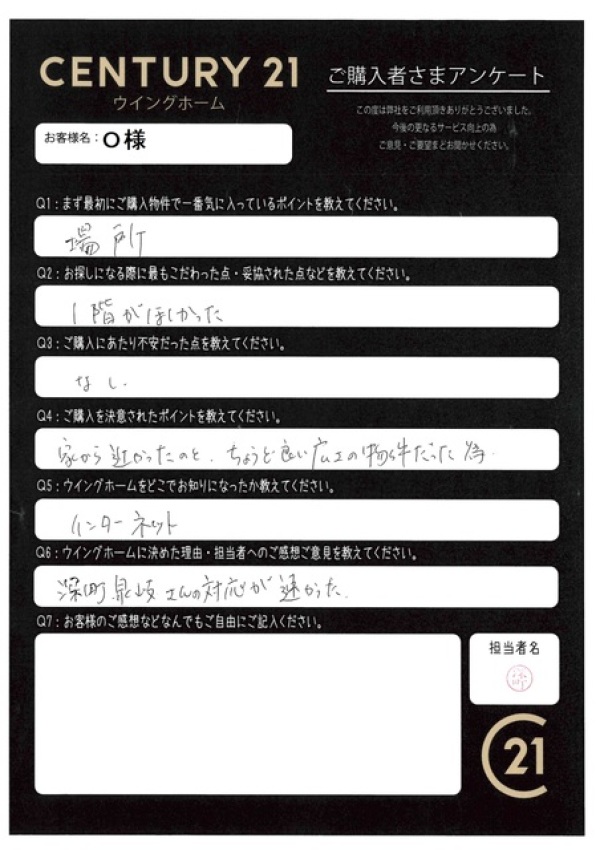 CENTURY 21
ウイングホーム
ご購入者さまアンケート
この度は弊社をご利用頂きありがとうございました。
今後の更なるサービス向上の為
ご意見・ご要望までお聞かせください。
お客様名：O様
Q1：まず最初にご購入物件で一番気に入っているポイントを教えてください。
場所
Q2：お探しになる際に最もこだわった点・妥協された点などを教えてください。
1階がほしかった
Q3：ご購入にあたり不安だった点を教えてください。
なし.
Q4：ご購入を決意されたポイントを教えてください。
家から近かったのと、ちょうど良い広さの物件だった為.
Q5：ウイングホームをどこでお知りになったか教えてください。
インターネット
Q6：ウイングホームに決めた理由・担当者へのご感想ご意見を教えてください。
深町 さんの対応が速かった.
Q7：お客様のご感想などなんでもご自由にご記入ください。
担当者名
C21